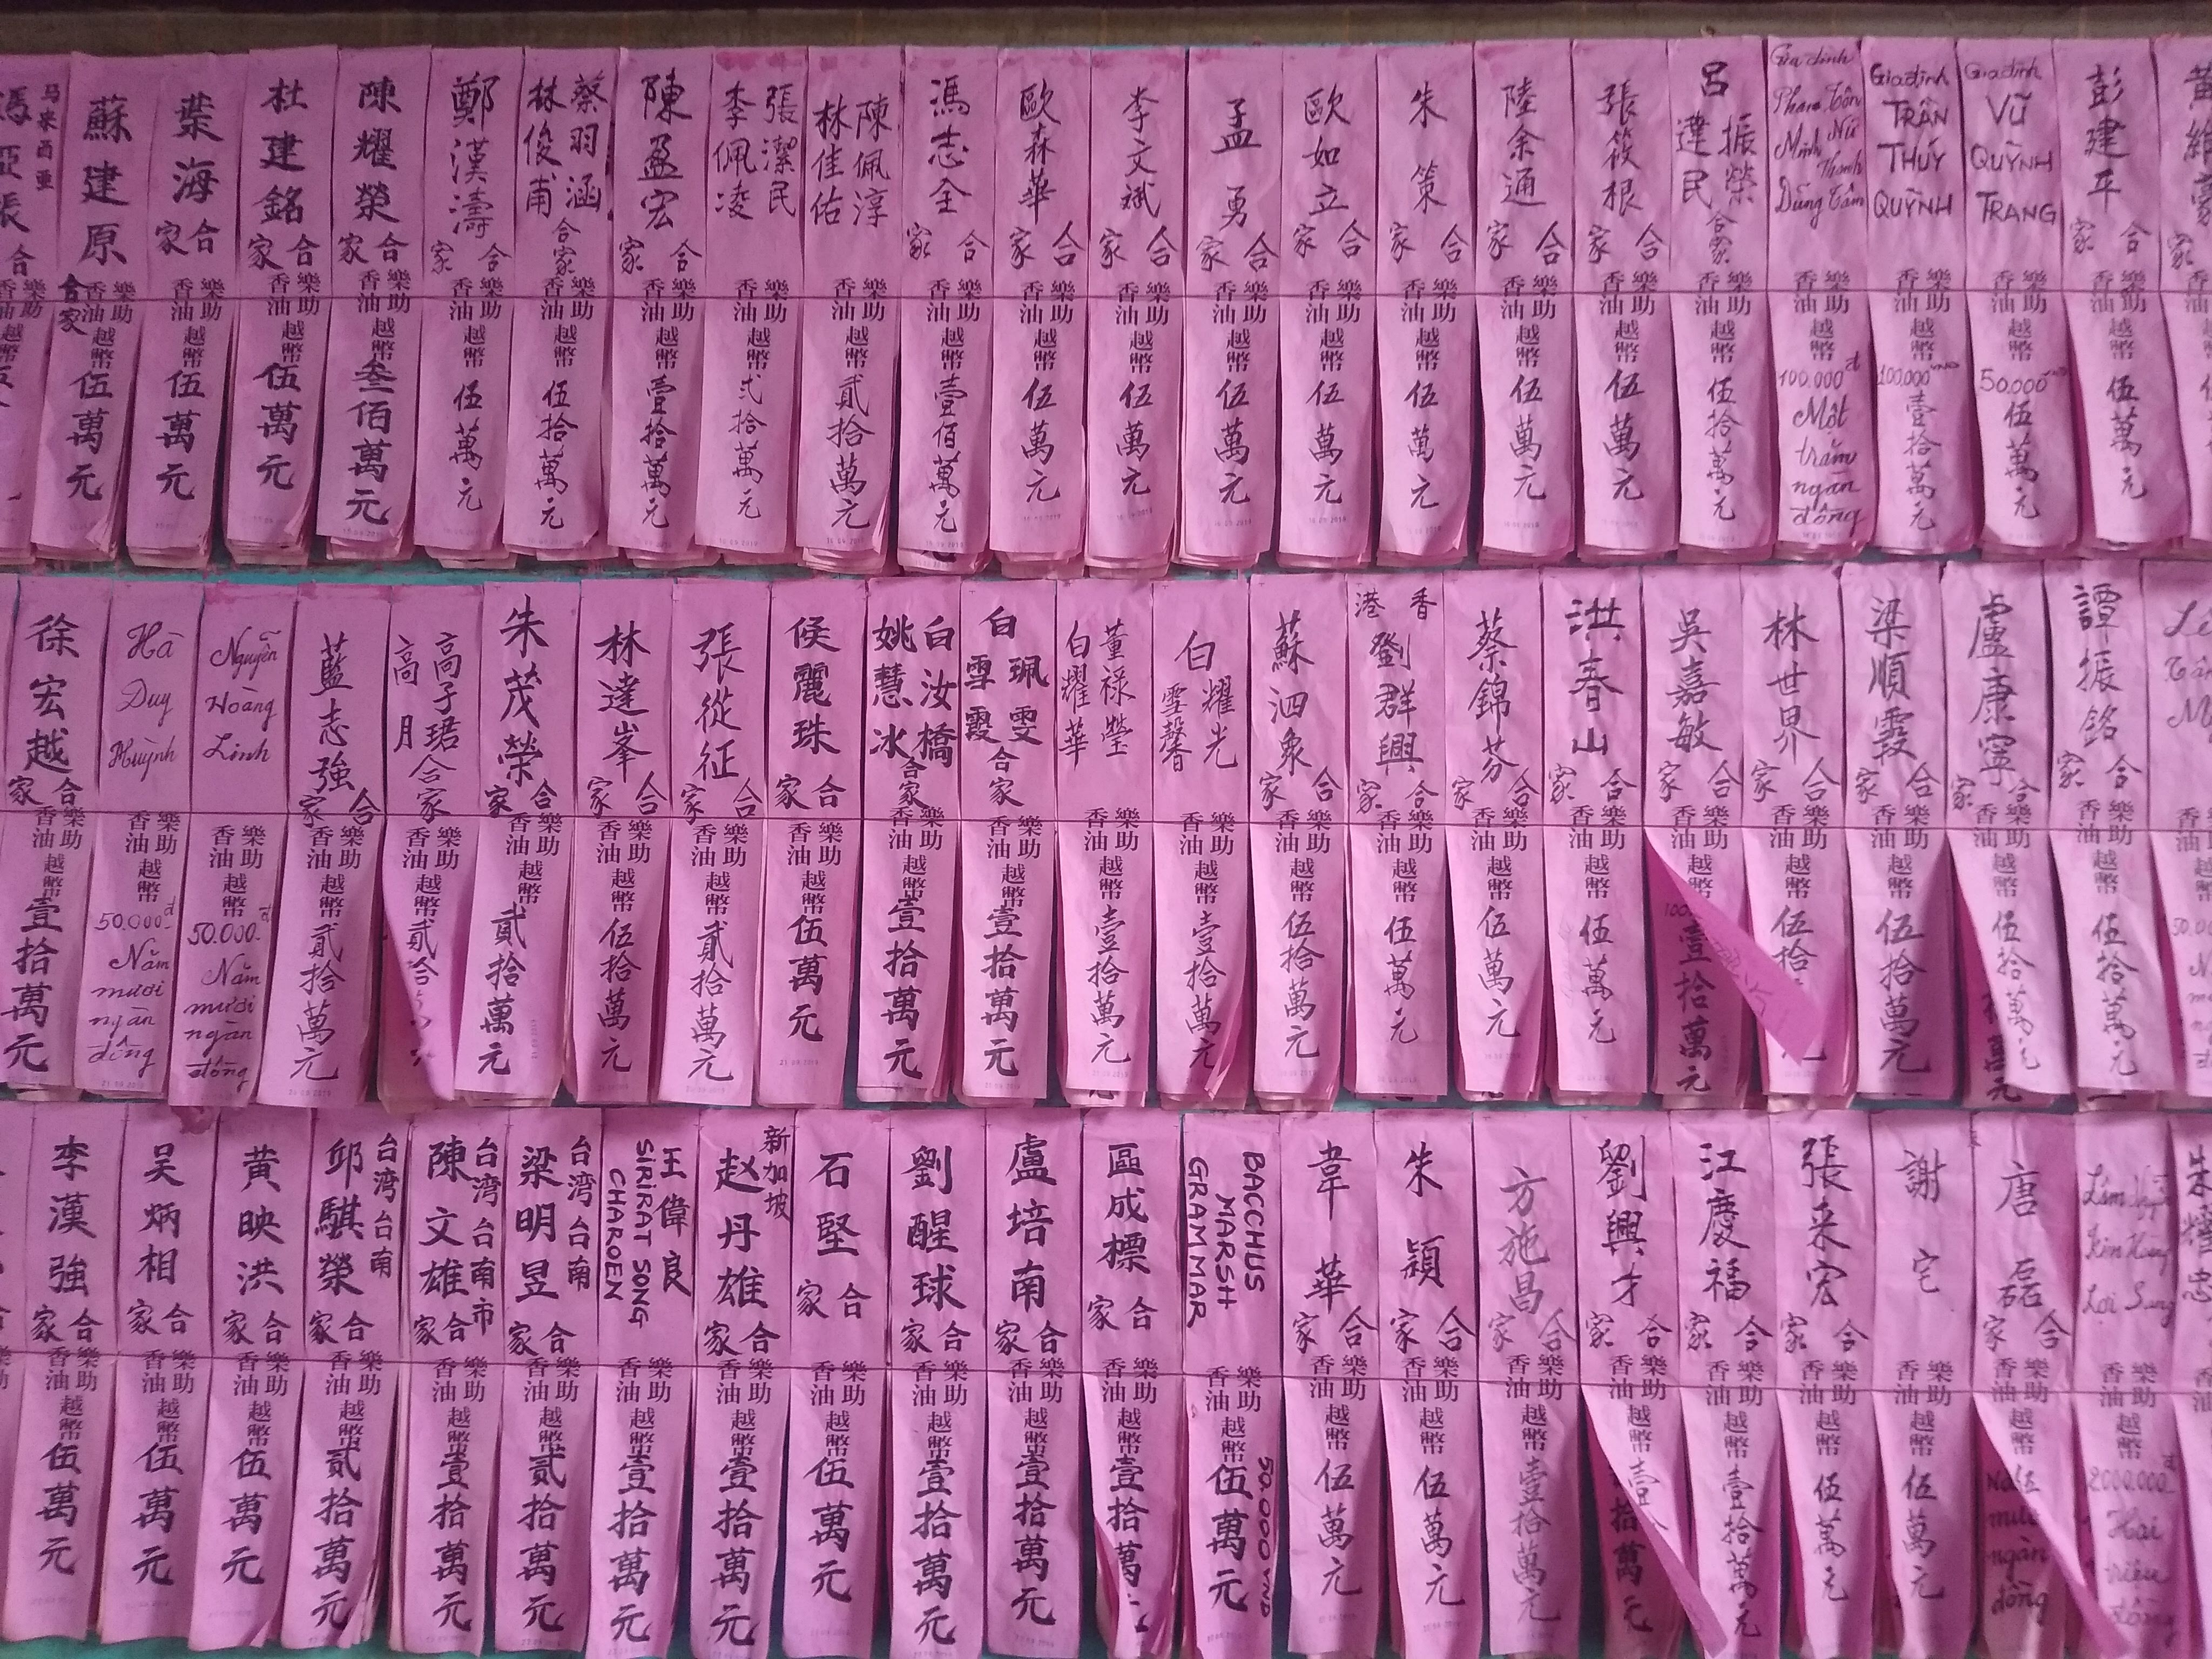 马来西亚
蘇建原合家
樂助香油
越幣伍萬元
葉海合家
樂助香油
越幣伍萬元
杜建銘合家
樂助香油
越幣伍萬元
陳耀榮合家
樂助香油
越幣叁佰萬元
鄭漢濤合家
樂助香油
越幣伍萬元
蔡羽涵
林俊甫
合家
樂助香油
越幣伍拾萬元
陳盈宏合家
樂助香油
越幣壹拾萬元
張潔民
李佩凌
樂助香油
越幣弍拾萬元
陳佩淳
林佳佑
樂助香油
越幣貳拾萬元
馮志全合家
樂助香油
越幣壹佰萬元
歐森華合家
樂助香油
越幣伍萬元
李文斌合家
樂助香油
越幣伍萬元
孟勇合家
樂助香油
越幣伍萬元
歐如立合家
樂助香油
越幣伍萬元
朱策合家
樂助香油
越幣伍萬元
陸余通合家
樂助香油
越幣伍萬元
張筱根合家
樂助香油
越幣伍萬元
呂
振榮
達民
合家
樂助香油
越幣伍拾萬元
Gia đình
樂助香油
越幣
100.000đ
Một
trăm
ngàn
đồng
Gia đình
TRẦN
THÚY
QUỲNH
樂助香油
越幣
100.000 VND
壹拾萬元
Gia đình
VŨ
QUỲNH
TRANG
樂助香油
越幣
50.000
伍萬元
彭建平合家
樂助香油
越幣伍萬元
徐宏越合家
樂助香油
越幣壹拾萬元
Hà
Duy
Huỳnh
樂助香油
越幣
50.000đ
Năm
mươi
ngàn
đồng
Nguyễn
Hoàng
Linh
樂助香油
越幣
50.000đ
Năm
mươi
ngàn
đồng
藍志強合家
樂助香油
越幣貳拾萬元
高子珺
高月
合家
樂助香油
越幣貳拾
朱茂榮合家
樂助香油
越幣貳拾萬元
林達峯合家
樂助香油
越幣伍拾萬元
張從征合家
樂助香油
越幣貳拾萬元
侯麗珠合家
樂助香油
越幣伍萬元
白汝橋
姚慧冰
合家
樂助香油
越幣壹拾萬元
白
珮雯
雪霞
合家
樂助香油
越幣壹拾萬元
董禄瑩
白耀華
樂助香油
越幣壹拾萬元
白
耀光
雪馨
樂助香油
越幣壹拾萬元
蘇泗象合家
樂助香油
越幣伍拾萬元
香港
劉群興合家
樂助香油
越幣伍萬元
蔡錦芬合家
樂助香油
越幣伍萬元
洪春山合家
樂助香油
越幣伍萬元
吳嘉敏合家
樂助香油
越幣
壹拾萬元
林世界合家
樂助香油
越幣伍拾
梁順霞合家
樂助香油
越幣伍拾萬元
盧康寧合家
樂助香油
越幣伍拾萬元
譚振銘合家
樂助香油
越幣伍拾萬元
李漢強合家
樂助香油
越幣伍萬元
吴炳相合家
樂助香油
越幣伍萬元
黄映洪合家
樂助香油
越幣伍萬元
台湾台南
邱騏榮合家
樂助香油
越幣貳拾萬元
台湾台南市
陳文雄合家
樂助香油
越幣壹拾萬元
台湾台南
梁明昱合家
樂助香油
越幣貳拾萬元
王偉良
SIRIRAT SONG
CHAROEN
樂助香油
越幣壹拾萬元
新加坡
赵丹雄合家
樂助香油
越幣壹拾萬元
石堅合家
樂助香油
越幣伍萬元
劉醒球合家
樂助香油
越幣壹拾萬元
盧培南合家
樂助香油
越幣壹拾萬元
區成標合家
樂助香油
越幣壹拾萬元
BACCHUS
MARSH
GRAMMAR
樂助香油
越幣伍萬元
50.000 VND
韋華合家
樂助香油
越幣伍萬元
朱穎合家
樂助香油
越幣伍萬元
方施昌合家
樂助香油
越幣壹拾萬元
劉興才合家
樂助香油
越幣壹拾萬元
江慶福合家
樂助香油
越幣壹拾萬元
張来宏合家
樂助香油
越幣伍萬元
謝宅
樂助香油
越幣伍萬元
唐磊合家
樂助香油
越幣伍
ngàn
đồng
樂助香油
越幣
2000.000đ
Hai
triệu
đồng